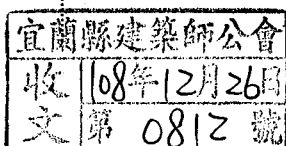 宜蘭縣建築師公會
收文
108年12月26日
第 0812 號